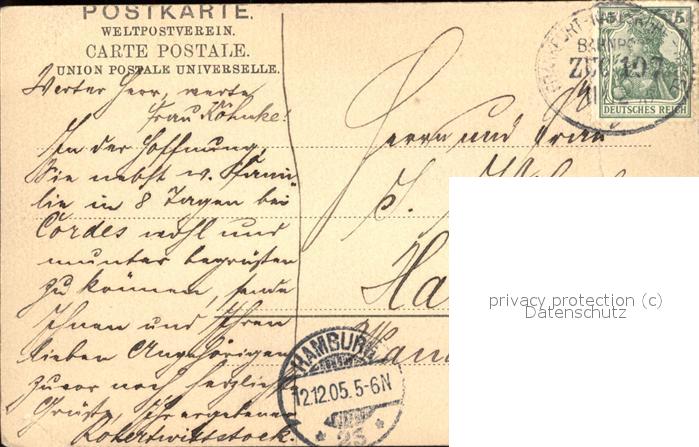 POSTKARTE.
WELTPOSTVEREIN.
CARTE POSTALE.
UNION POSTALE UNIVERSELLE.
Werter Herr, werte
Frau Köhnke!
In der Hoffnung,
Sie nebst w. Fami-
lie in 8 Tagen bei
Cordes wohl und
munter begrüßen
zu können, sende
Ihnen und Ihren
lieben Angehörigen
zuvor noch herzliche
Grüße, Ihr ergebener
Robert Wittstock.
Herrn und Frau
BAHNPO
ZUG 107
5
DEUTSCHES REICH
HAMBURG
12.12.05. 5-6N
* 25 *
privacy protection (c)
Datenschutz